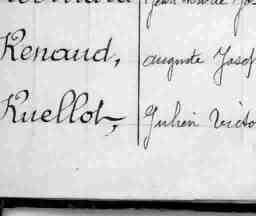 Renaud, Auguste Josep
Ruellot, Julien Victo